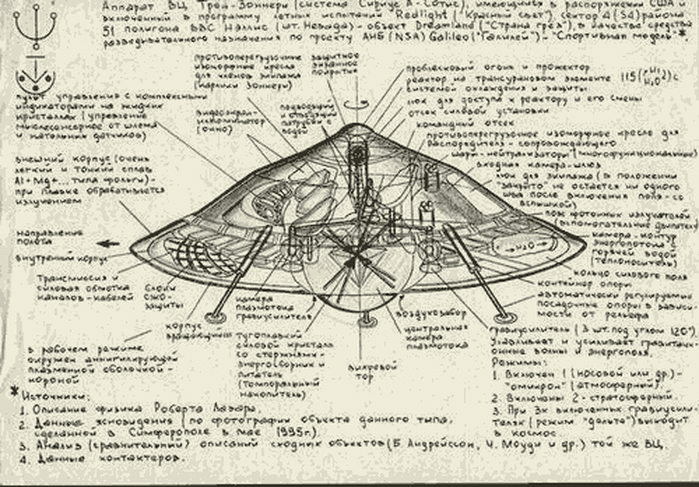 Аппарат ВЦ Трои-Зоннери (система Сириус А-Сотис), имеющийся в распоряжении США и
включенный в программу летных испытаний Redlight ("Красный свет"), сектор 4 (S4) района
51 полигона ВВС Нэллис (шт. Невада) - объект Dreamland ("Страна грёз"), в качестве средства
разведывательного назначения по проекту АНБ (NSA) Galileo ("Галилей") - "Спортивная модель" *
противоперегрузочные
изоморфные кресла
для членов экипажа
(карлики Зоннери)
защитное
экранное
покрытие
проблесковый огонь и прожектор
реактор на трансурановом элементе 115
системой охлаждения и защиты
люк для доступа к реактору и его смены
отсек силовой установки
командный отсек
противоперегрузочное изоморфное кресло для
распорядителя - сопровождающего
шары-нейтрализаторы (многофункциональные)
входная камера-шлюз
люк для экипажа (в положении
"закрыто" не остается ни одного
шва после включения поля - со
вспышкой)
пояс фотонных излучателей
(вспомогательные двигатели)
камера-контур
энергопотока с
горячей водой
(теплоноситель)
кольцо силового поля
контейнер опоры
автоматически регулируемые
посадочные опоры в зависи-
мости от рельефа
пульт управления с комплексными
индикаторами на жидких
кристаллах (управление
мыслесенсорное от шлема
и натальных датчиков)
видеоэкран-
иллюминатор
(окно)
подводящий
и отводящий
патрубок с
водой
внешний корпус (очень
легкий и тонкий сплав
Al+Mg+... типа фольги) -
при плавке обрабатывается
излучением
направление
полета
внутренний корпус
Трансмиссия и
силовая обмотка
каналов-кабелей
блоки
СЖО-
защиты
корпус
вращающийся
камера
плазмотока
гравиусилитель
тугоплавкий
силовой кристалл
со стержнями-
энергосборник и
питатель
(темпоральный
накопитель)
вихревой
тор
воздухозабор
центральная
камера
плазмотока
гравиусилитель (3 шт. под углом 120°)
улавливает и усиливает гравитаци-
онные волны и энергополя.
Режимы:
1. Включен 1 (носовой или др.) -
"омикрон" (атмосферный).
2. Включены 2 - стратосферный.
3. При 3х включенных гравиусили-
телях (режим "дельта") выходит
в космос.
в рабочем режиме
окружен аннигилирующей
плазменной оболочкой -
короной
* Источники:
1. Описание физика Роберта Лазара.
2. Данные ясновидения (по фотографии объекта данного типа,
сделанной в Симферополе в мае 1995г.).
3. Анализ (сравнительный) описаний сходных объектов (Б. Андрейссон, Ч. Моуди и др.) той же ВЦ.
4. Данные контактеров.